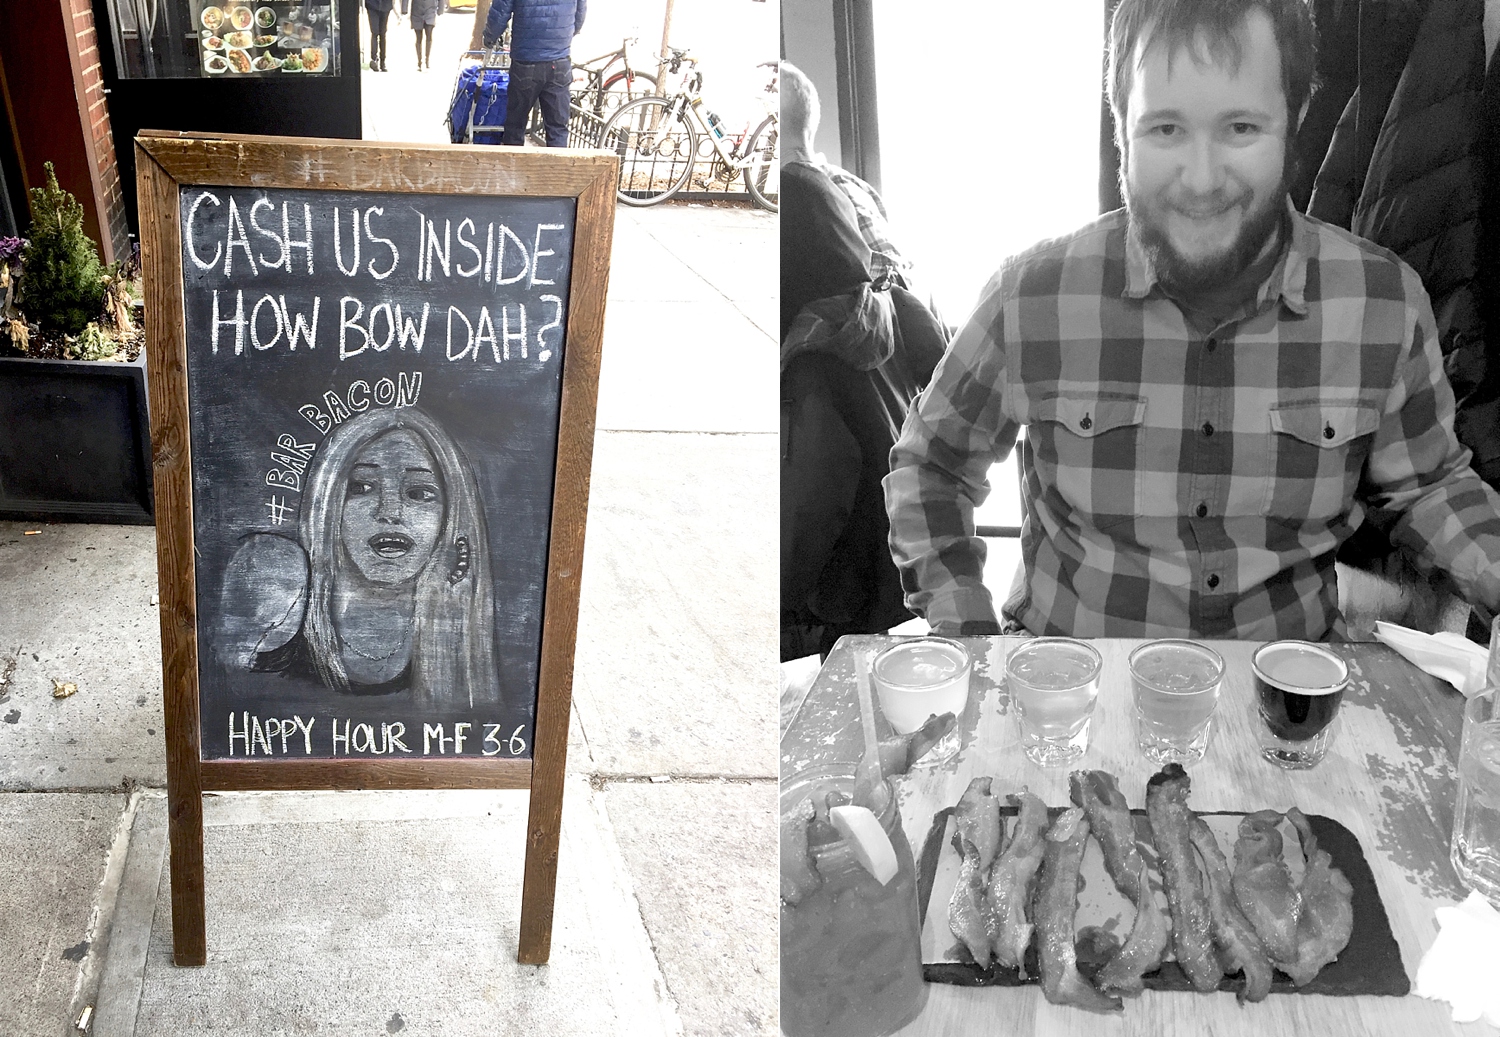 # BARBACON
CASH US INSIDE
HOW BOW DAH?
#BAR BACON
HAPPY HOUR M-F 3-6